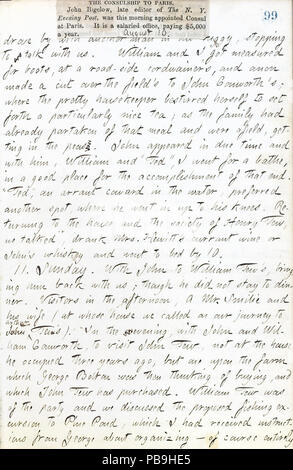 THE CONSULSHIP TO PARIS.
John Bigelow, late editor of The N. Y.
Evening Post, was this morning appointed Consul
at Paris. It is a salaried office, paying $5,000
a year.
99
August 10.
drove by with another man in a buggy, stopping
to talk with us. William and I got measured
for boots, at a road-side cordwainer's, and anon
made a cut over the fields to John Conworth's;
where the pretty housekeeper bestirred herself to set
forth a particularly nice tea; as the family had
already partaken of that meal and were afield, get-
ting in the peas. John appeared in due time and
with him, William and "Ted" I went for a bathe,
in a good place for the accomplishment of that end.
"Ted," an arrant coward in the water preferred
another spot where he went in up to his knees. Re-
turning to the house and the society of Henry Tew,
we talked, drank Mrs. Hewitt's currant wine or
John's whiskey and went to bed by 10.
11. Sunday. With John to William Tew's, bring
ing him back with us; though he did not stay to din-
ner. Visitors in the afternoon, A Mr. Smilie and
his wife (at whose house we called on our journey to
John Tew's). In the evening, with John and Wil-
liam Conworth, to visit John Tew, not at the house
he occupied three years ago, but one upon the farm
which George Bolton was then thinking of buying, and
which John Tew has purchased. William Tew was
of the party and we discussed the proposed fishing ex-
cursion to Pine Pond, which I had received instruct-
ions from George about organizing - of course entirely
PB9HE5